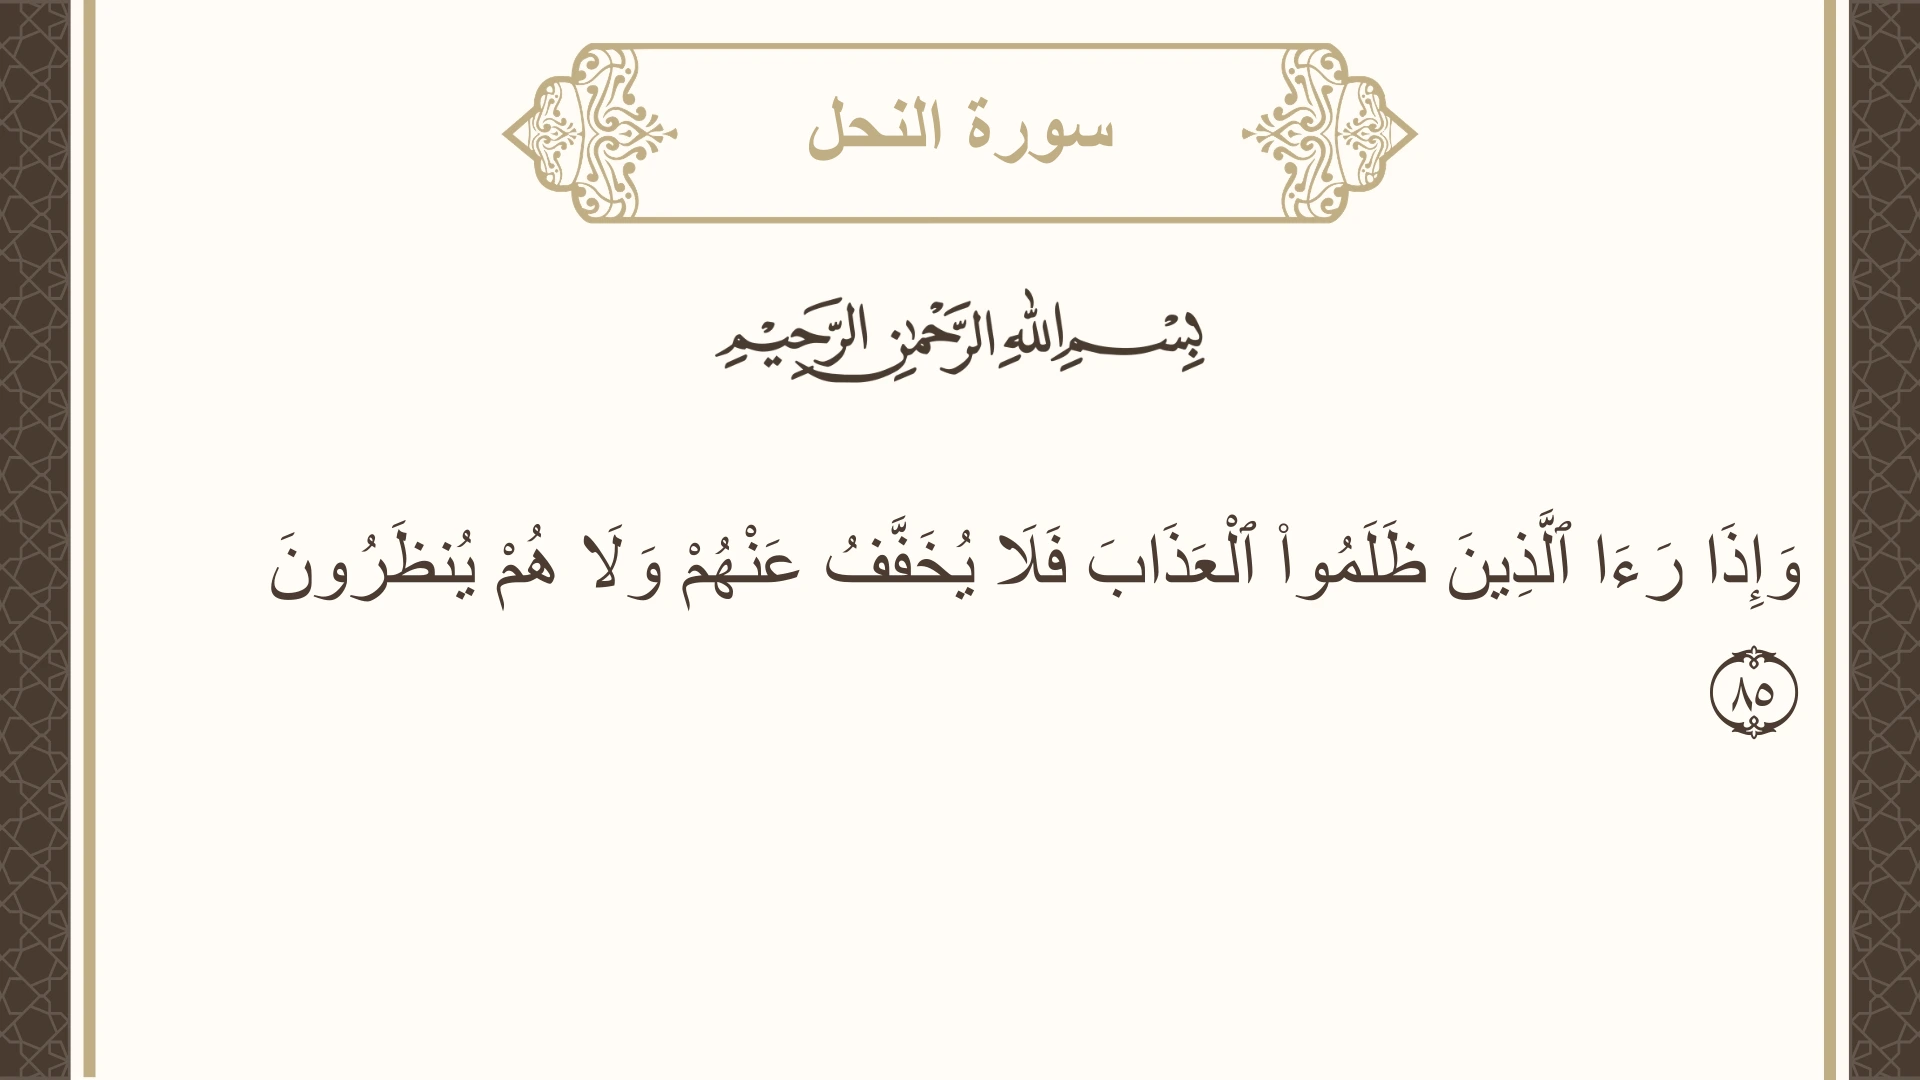 سورة النحل
بِسْمِ اللهِ الرَّحْمٰنِ الرَّحِيْمِ
وَإِذَا رَءَا ٱلَّذِينَ ظَلَمُوا۟ ٱلْعَذَابَ فَلَا يُخَفَّفُ عَنْهُمْ وَلَا هُمْ يُنظَرُونَ
٨٥